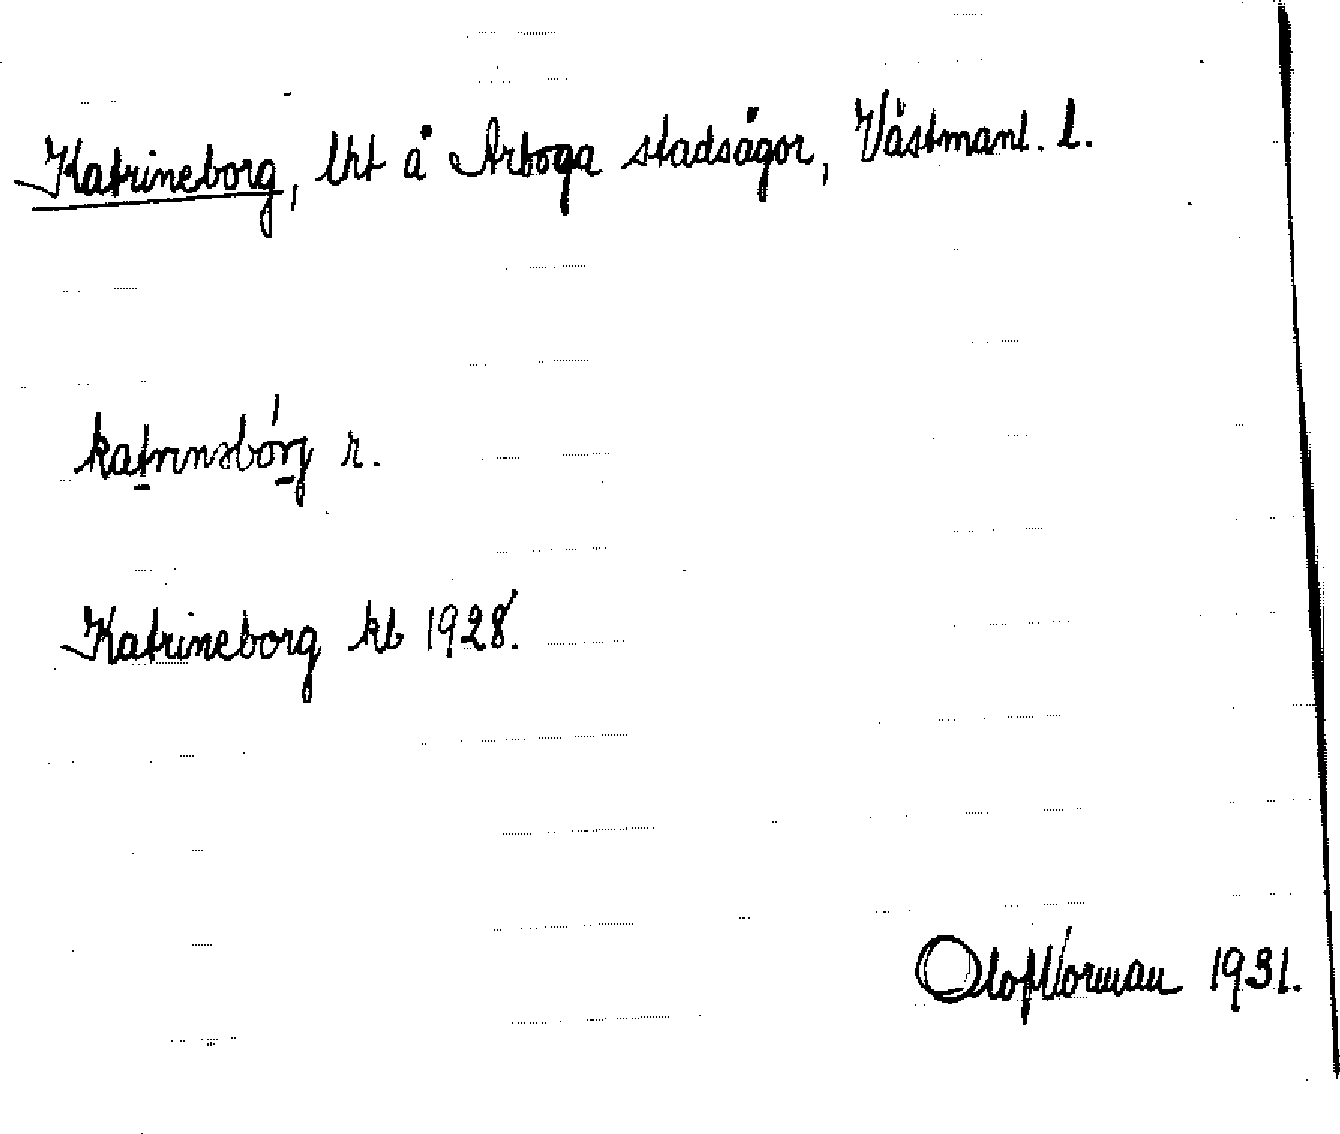 Katrineborg, lht å Arboga stadsägor, Västmanl. l.
katrınsbórg r.
Katrineborg kb 1928.
Olof Norman 1931.